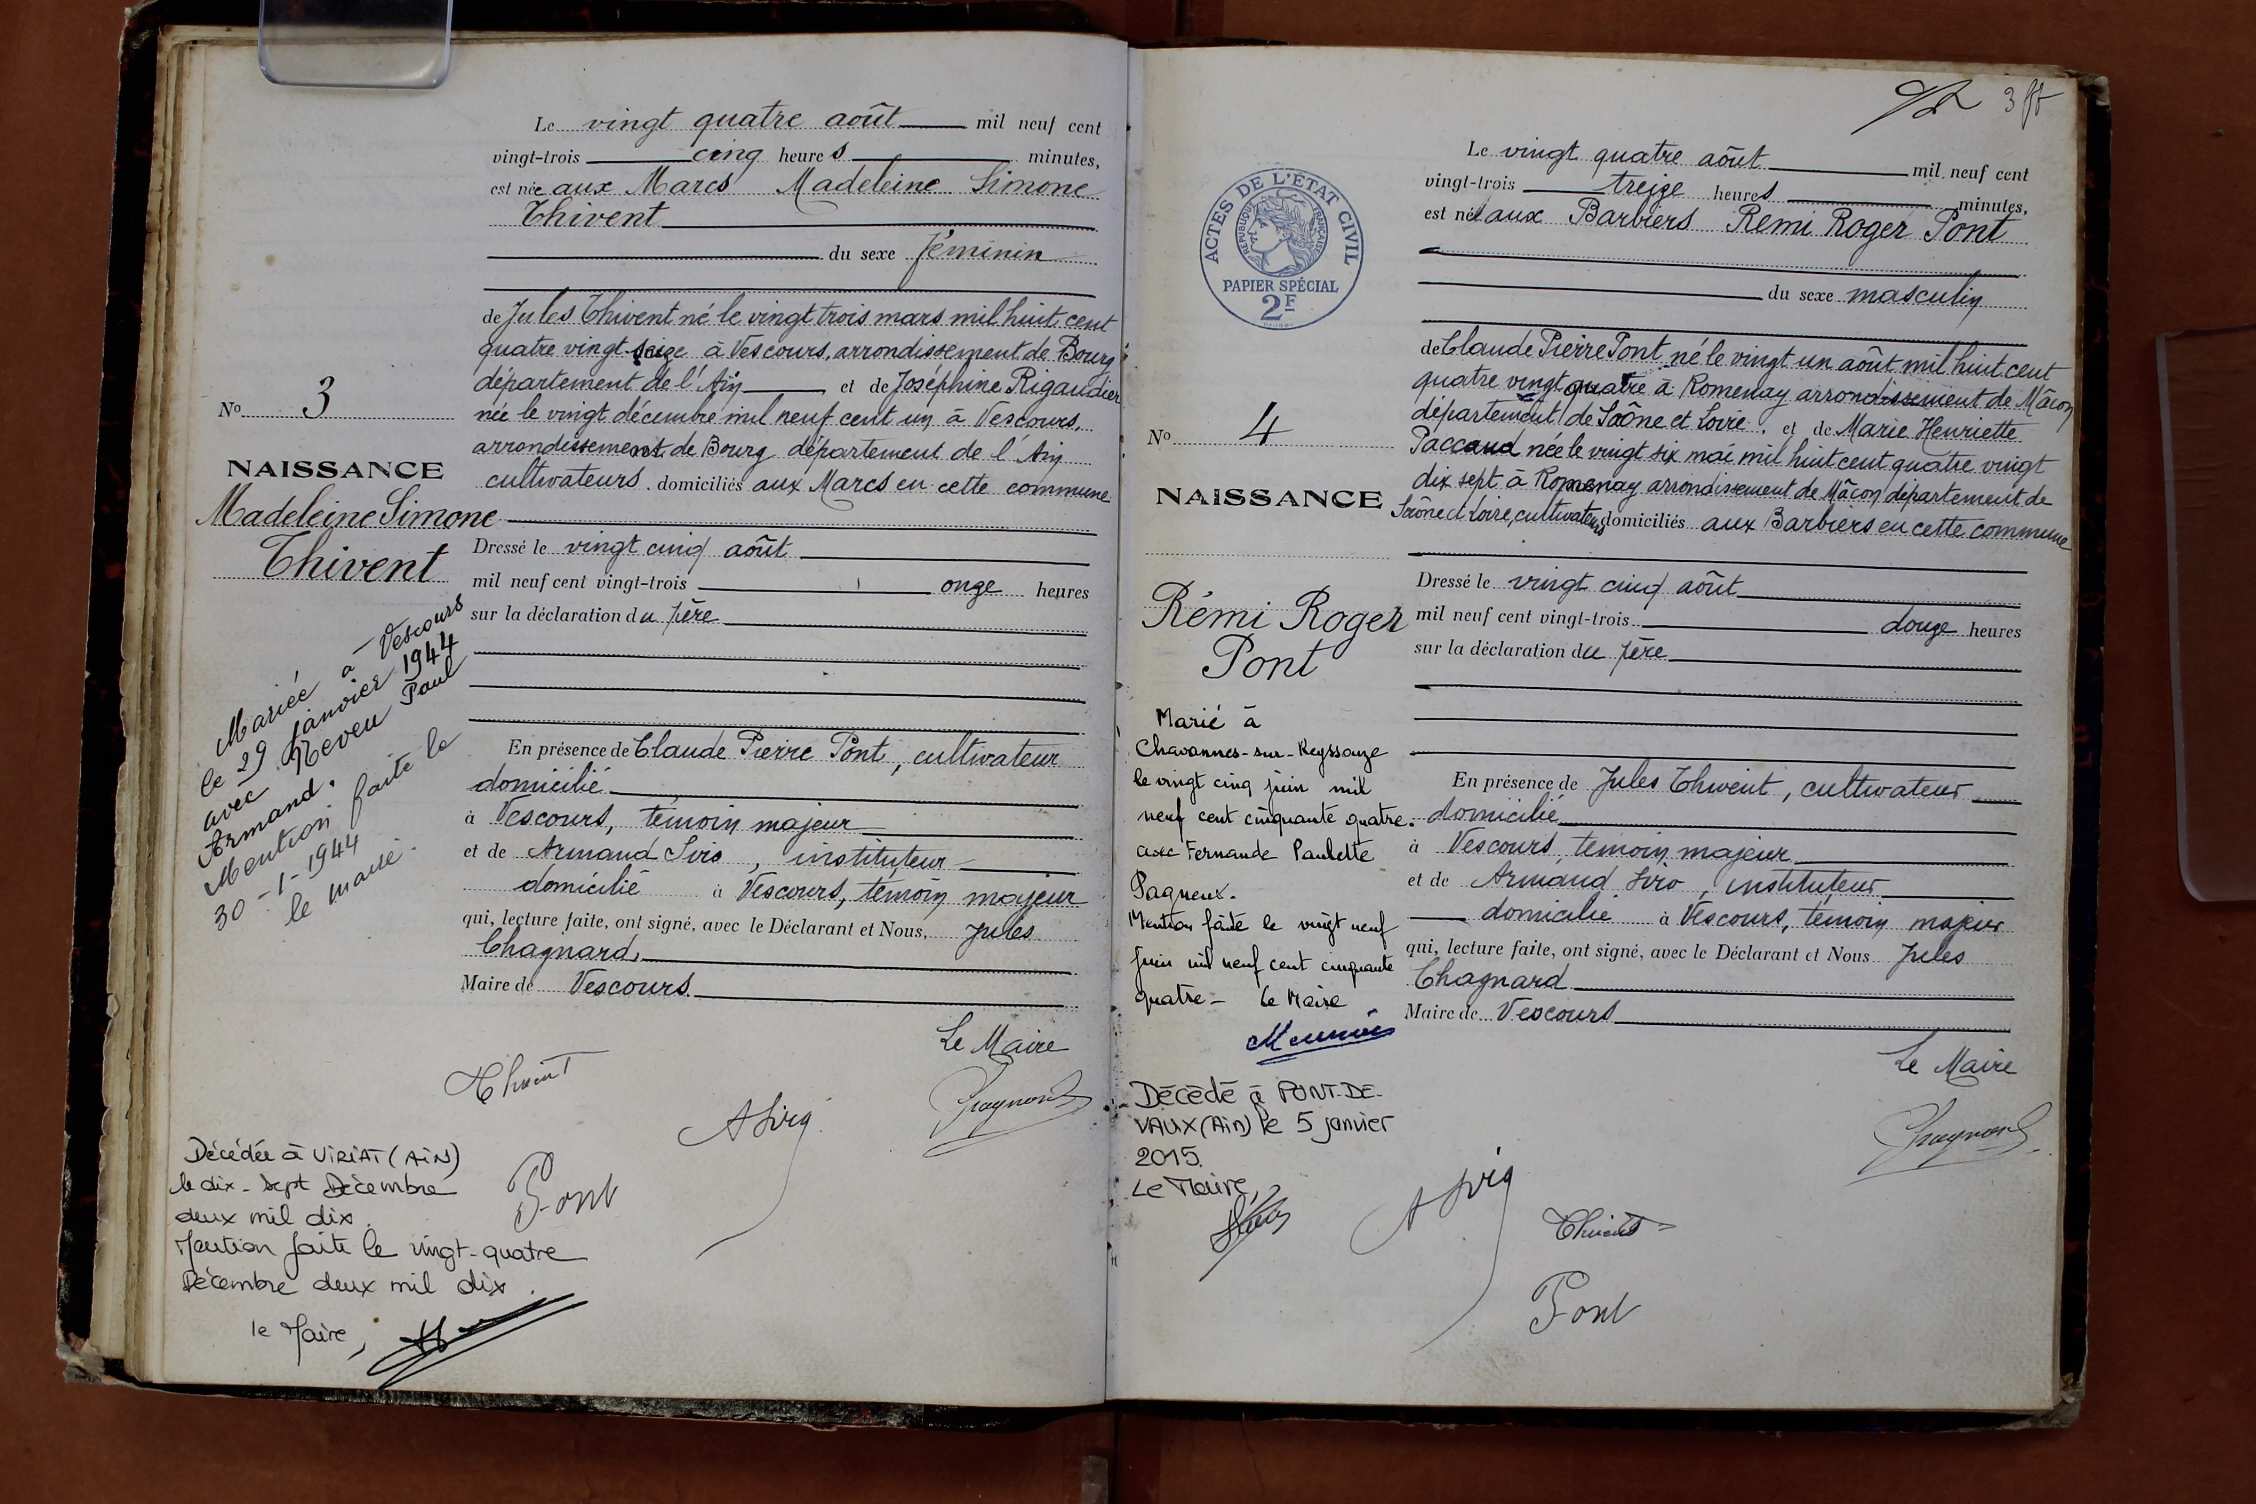 Le vingt quatre août mil neuf cent
vingt-trois cinq heures minutes,
est née aux Marcs Madeleine Simone
Thivent
du sexe féminin
de Jules Thivent né le vingt trois mars mil huit cent
quatre vingt seize à Vescours, arrondissement de Bourg
département de l'Ain et de Joséphine Rigaudier
née le vingt décembre mil neuf cent un à Vescours,
arrondissement de Bourg département de l'Ain
cultivateurs domiciliés aux Marcs en cette commune
Dressé le vingt cinq août
mil neuf cent vingt-trois onze heures
sur la déclaration du père
En présence de Claude Pierre Pont, cultivateur
domicilié
à Vescours, témoin majeur
et de Armand , instituteur
domicilié à Vescours, témoin majeur
qui, lecture faite, ont signé, avec le Déclarant et Nous, Jules
Chagnard,
Maire de Vescours.
Le Maire
Thivent
Pont
No 3
NAISSANCE
Madeleine Simone
Thivent
Mariée à Vescours
le 29 janvier 1944
avec Neveu Paul
Armand.
Mention faite le
30-1-1944
le maire.
Décédée à VIRIAT (AIN)
le dix-sept Décembre
deux mil dix.
Mention faite le vingt-quatre
Décembre deux mil dix.
le Maire,
3
ACTES DE L'ÉTAT CIVIL
RÉPUBLIQUE FRANÇAISE
PAPIER SPÉCIAL
2F
Le vingt quatre août mil neuf cent
vingt-trois treize heures minutes,
est né aux Barbiers Remi Roger Pont
du sexe masculin
de Claude Pierre Pont né le vingt un août mil huit cent
quatre vingt quatre à Romenay arrondissement de Mâcon
département de Saône et Loire. et de Marie Henriette
Paccaud née le vingt six mai mil huit cent quatre vingt
dix sept à Romenay arrondissement de Mâcon département de
Saône et Loire, cultivateurs domiciliés aux Barbiers en cette commune
Dressé le vingt cinq août
mil neuf cent vingt-trois douze heures
sur la déclaration du père
En présence de Jules Thivent, cultivateur
domicilié
à Vescours, témoin majeur
et de Armand , instituteur
domicilié à Vescours, témoin majeur
qui, lecture faite, ont signé, avec le Déclarant et Nous Jules
Chagnard
Maire de Vescours
Le Maire
Thivent
Pont
No 4
NAISSANCE
Rémi Roger
Pont
Marié à
Chavannes-sur-Reyssouze
le vingt cinq juin mil
neuf cent cinquante quatre.
avec Fernande Paulette
Pagneux.
Mention faite le vingt neuf
Juin mil neuf cent cinquante
quatre - Le Maire
Décédé à PONT-DE-
VAUX (Ain) le 5 janvier
2015.
Le Maire,